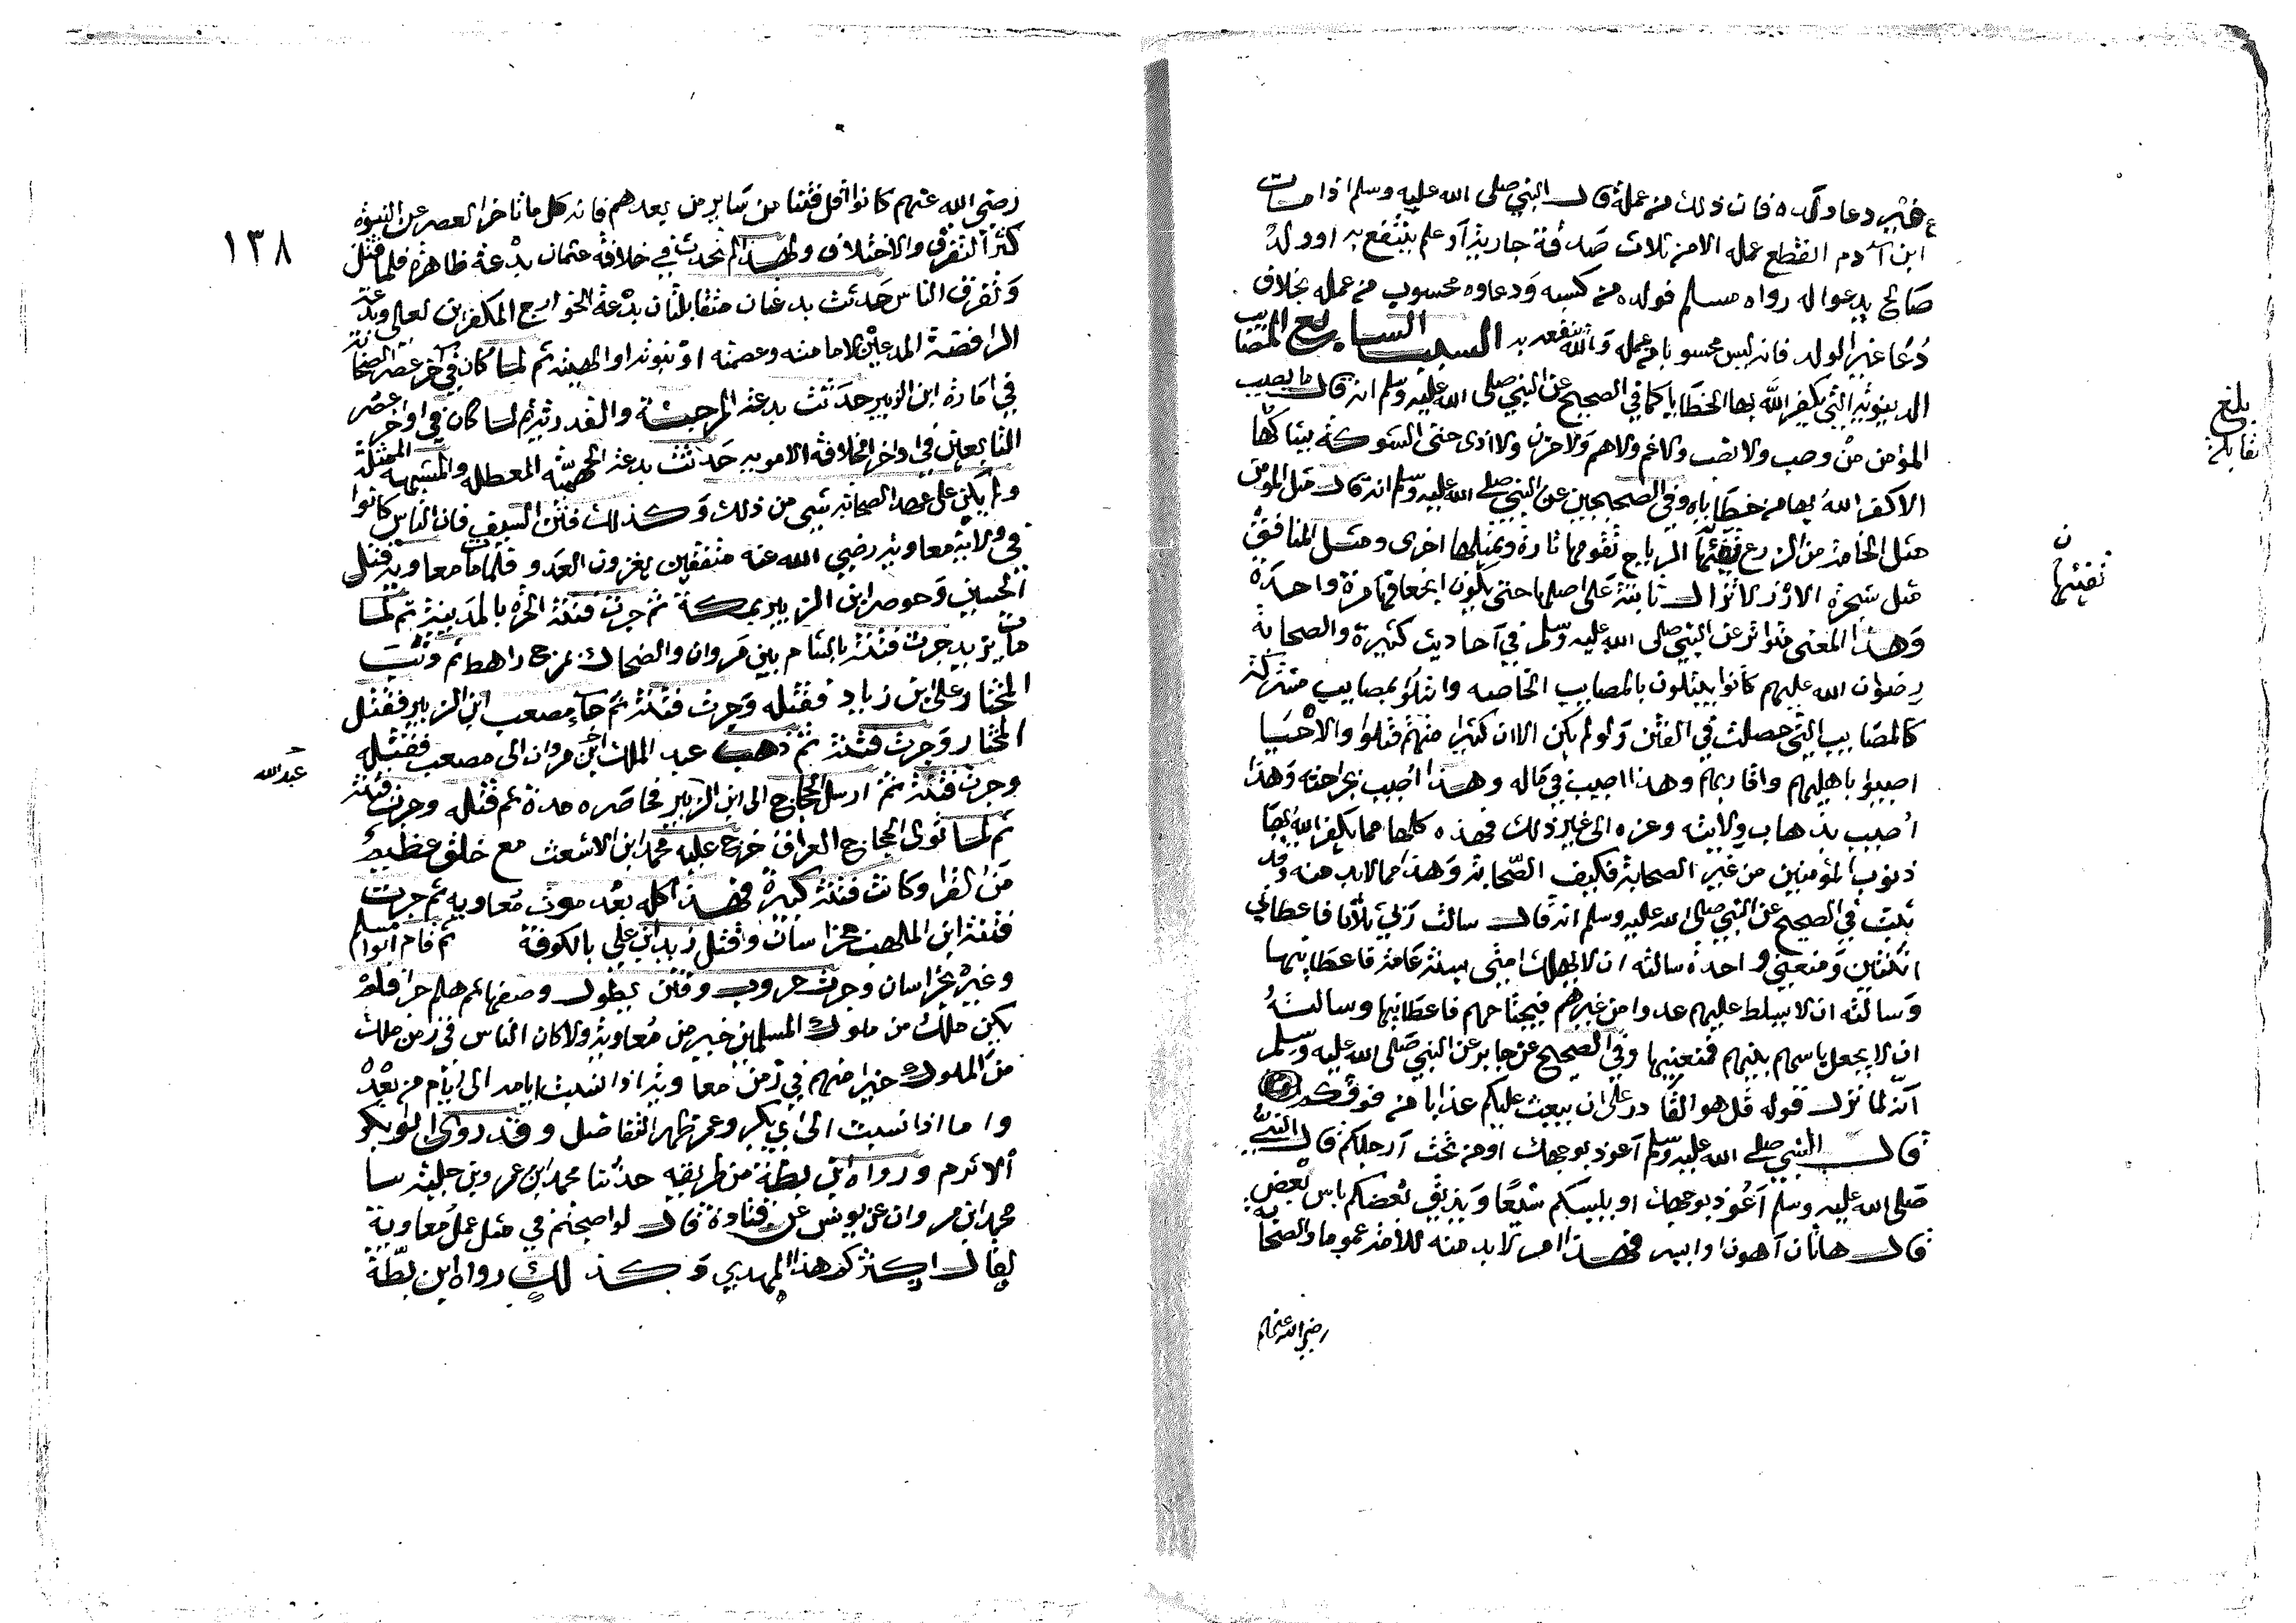 غير دعا ولده فان ذلك من عمله قال النبي صلى الله عليه وسلم اذا مات
ابن آدم انقطع عمله الا من ثلاث صدقة جارية او علم ينتفع به او ولد
صالح يدعوا له رواه مسلم فولده من كسبه ودعاوه محسوب من عمله بخلاف
دعا غير الولد فانه ليس محسوبا من عمله والله ينفعه به السبب السابع المصايب
الدينوية التي يكفر الله بها الخطايا كما في الصحيح عن النبي صلى الله عليه وسلم انه قال ما يصيب
المؤمن من وصب ولا نصب ولا غم ولا هم ولا حزن ولا اذى حتى الشوكة يشاكها
الا كفر الله بها من خطاياه وفي الصحيحين عن النبي صلى الله عليه وسلم انه قال مثل المومن
مثل الخامة من الزرع تفيئها الرياح تقومها تارة وتميلها اخرى ومثل المنافق
مثل شجرة الارز لا تزال ثابتة على اصلها حتى يكون انجعافها مرة واحدة
وهذا المعنى متواتر عن النبي صلى الله عليه وسلم في احاديث كثيرة والصحابة
رضوان الله عليهم كانوا يبتلون بالمصايب الخاصه وابتلوا بمصايب مشتركة
كالمصايب التي حصلت في الفتن ولو لم يكن الا ان كثيرا منهم قتلوا والاحيا
اصيبوا باهليهم واقاربهم وهذا اصيب في ماله وهذا اصيب بجراحته وهذا
اصيب بذهاب ولايته وعزه الى غير ذلك فهذه كلها مما يكفر الله بها
ذنوب المؤمنين من غير الصحابة فكيف الصحابة وهذا مما لابد منه وقد
ثبت في الصحيح عن النبي صلى الله عليه وسلم انه قال سالت ربي ثلاثا فاعطاني
اثنتين ومنعني واحدة سالته ان لا يهلك امتي بسنة عامة فاعطانيها
وسالته ان لا يسلط عليهم عدوا من غيرهم فيجتاحهم فاعطانيها وسالته
ان لا يجعل باسهم بينهم فمنعنيها وفي الصحيح عن جابر عن النبي صلى الله عليه وسلم
انه لما نزل قوله قل هو القادر على ان يبعث عليكم عذابا من فوقكم
قال النبي صلى الله عليه وسلم اعوذ بوجهك او من تحت ارجلكم قال النبي
صلى الله عليه وسلم اعوذ بوجهك او يلبسكم شيعا ويذيق بعضكم باس بعض
قال هاتان اهون او ايسر فهذا امر لا بد منه للامة عموما والصحابة
رضي الله عنهم
بلغ
مقابلة
ن
تفيئها
١٣٨
رضي الله عنهم كانوا اقل فتنا من ساير من بعدهم فانه كل ما تاخر العصر عن النبوة
كثر التفرق والاختلاف ولهذا لم تحدث في خلافة عثمان بدعة ظاهرة فلما قتل
وتفرق الناس حدثت بدعتان متقابلتان بدعة الخوارج المكفرين لعلي وبدعة
الرافضة المدعين لامامته وعصمته او نبوته او الهيته ثم لما كان في اخر عصر الصحابة
في امارة ابن الزبير حدثت بدعة المرجئة والقدرية ثم لما كان في اواخر عصر
التابعين في اواخر الخلافة الاموية حدثت بدعة الجهمية المعطلة والمشبهة الممثلة
ولم يكن على عهد الصحابة شي من ذلك وكذلك فتن السيف فان الناس كانوا
في ولاية معاوية رضي الله عنه متفقين يغزون العدو فلما مات معاوية قتل
الحسين وحوصر ابن الزبير بمكة ثم جرت فتنة الحرة بالمدينة ثم لما
مات يزيد جرت فتنة بالشام بين مروان والضحاك بمرج راهط ثم وثب
المختار على ابن زياد فقتله وجرت فتنة ثم جاء مصعب ابن الزبير فقتل
المختار وجرت فتنة ثم ذهب عبد الملك ابن مروان الى مصعب فقتله
وجرت فتنة ثم ارسل الحجاج الى ابن الزبير فحاصره مدة ثم قتله وجرت فتنة
ثم لما تولى الحجاج العراق خرج عليه محمد ابن الاشعث مع خلق عظيم
من القرا وكانت فتنة كبيرة فهذا كله بعد موت معاويه ثم جرت
فتنة ابن المهلب بخراسان وقتل زيد ابن علي بالكوفة ثم قام ابوا مسلم
وغيره بخراسان وجرت حروب وفتن يطول وصفها ثم هلم جرا فلم
يكن ملك من ملوك المسلمين خير من معاوية ولا كان الناس في زمن ملك
من الملوك خيرا منهم في زمن معاوية اذا نسبت ايامه الى ايام من بعده
واما اذا نسبت الى ابي بكر وعمر ظهر التفاضل وقد روى ابو بكر
الاثرم ورواه ابن بطة من طريقه حدثنا محمد ابن عمرو بن جبلة سا
محمد ابن مروان عن يونس عن قتادة قال لو اصبحتم في مثل عمل معاوية
لقال اكثركم هذا المهدي وكذلك رواه ابن بطة
عبد الله